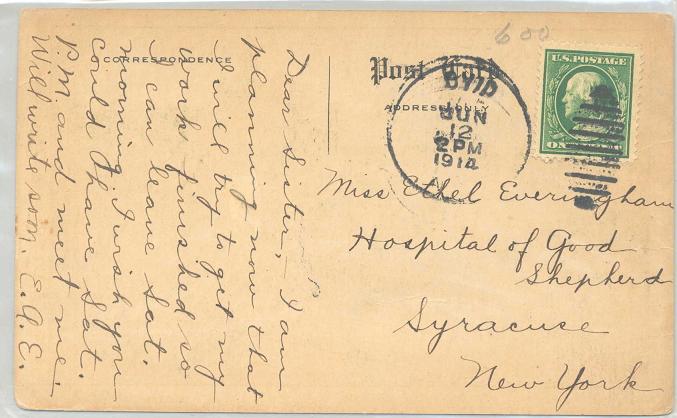 600
CORRESPONDENCE
Post Card
ADDRESS ONLY
U.S. POSTAGE
OVID
JUN
12
2 PM
1914
Dear Sister, - I am
planning now that
I will try to get my
work finished so
I can leave Sat.
morning. I wish you
could have Sat.
P.M. and meet me.
Will write soon. E.A.E.
Miss Ethel Everingham
Hospital of Good
Shepherd
Syracuse
New York